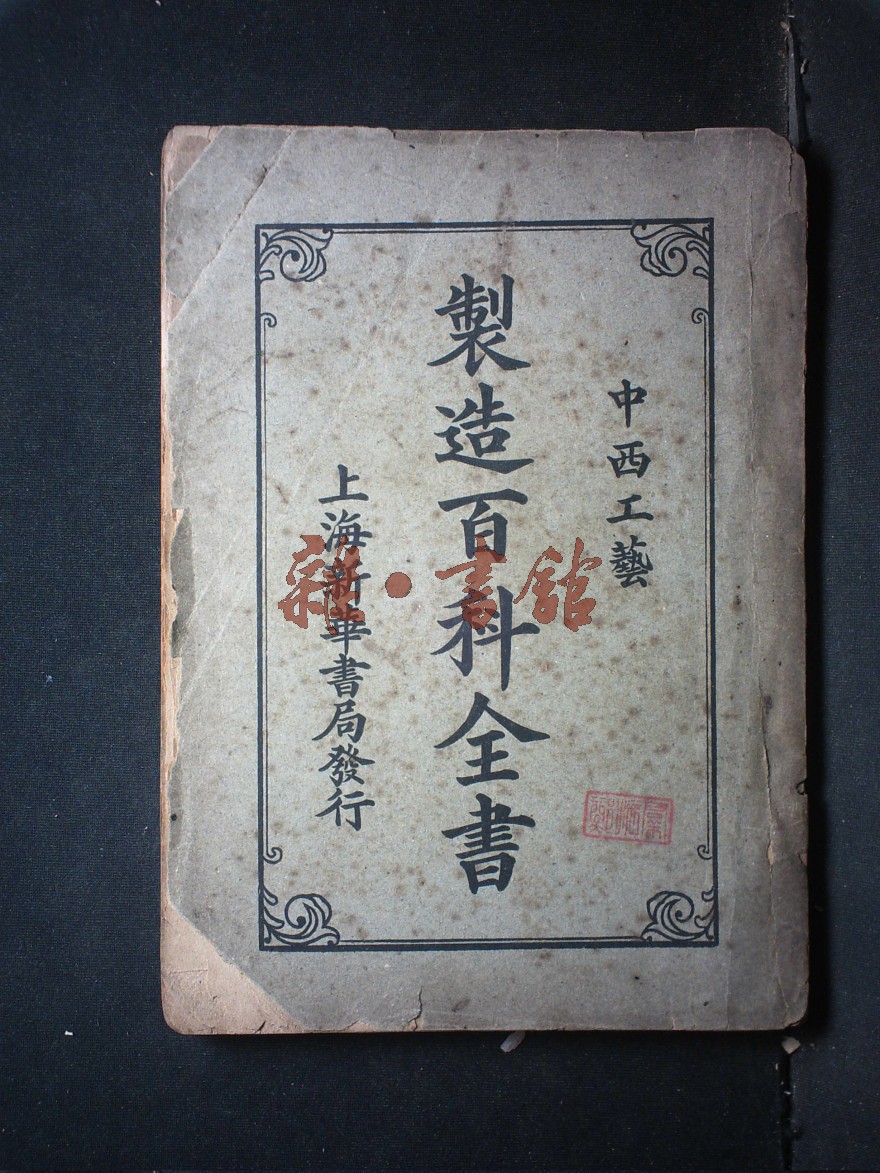 中西工藝
製造百科全書
上海新華書局發行
雜·書館